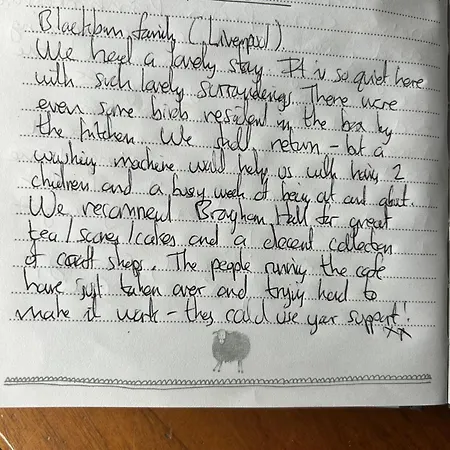 Blackburn family (Liverpool).
We had a lovely stay. It is so quiet here
with such lovely surroundings. There were
even some birds resident in the box by
the kitchen. We shall return - but a
washing machine would help us with having 2
children and a busy week of being out and about.
We recommend Brougham Hall for great
tea/scones/cakes and a decent collection
of craft shops. The people running the cafe
have just taken over and trying hard to
make it work - they could use your support!
xx